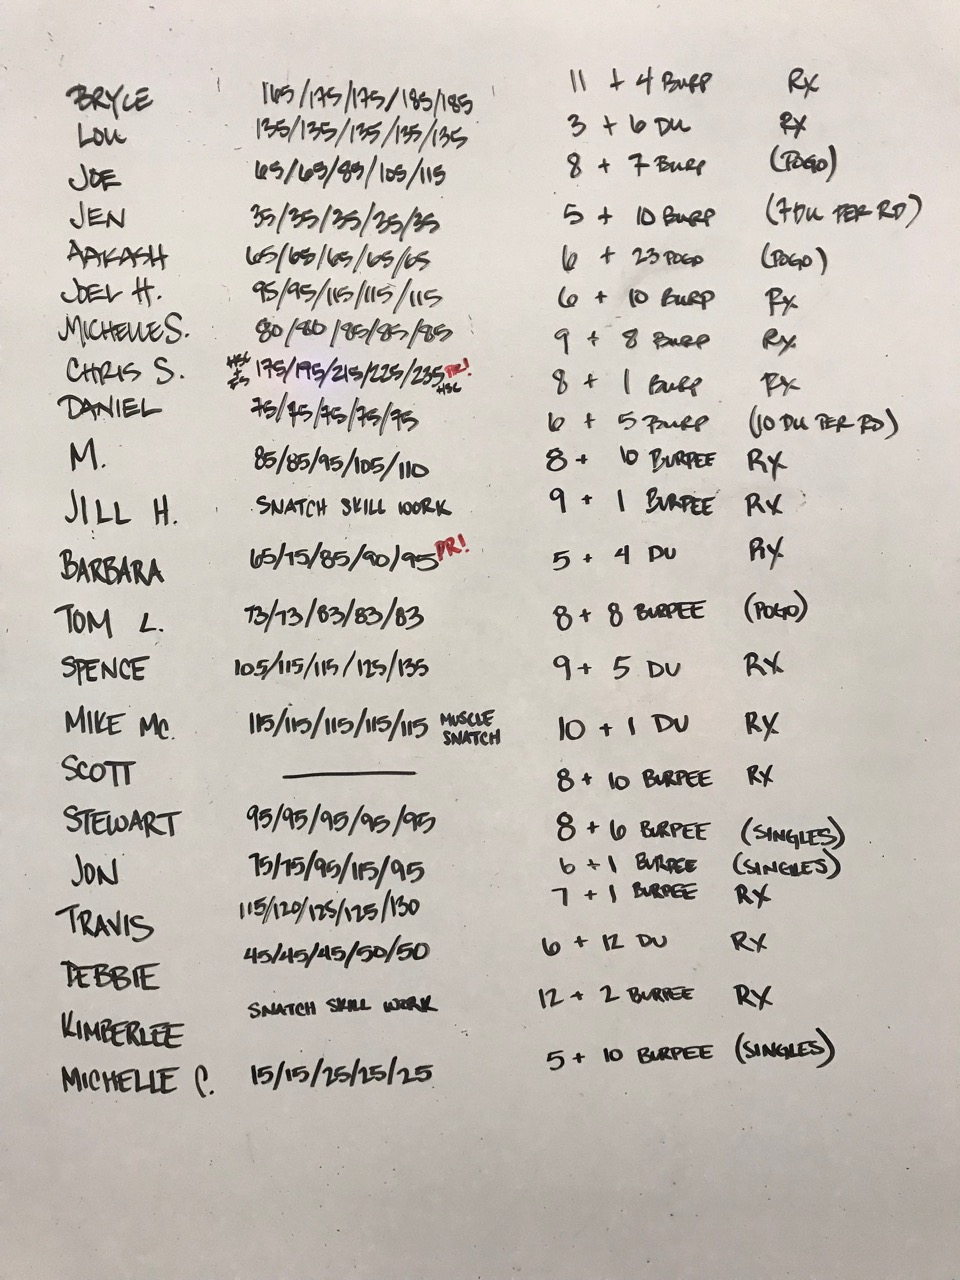 BRYCE 165/175/175/185/185 11 + 4 BURP RX
LOU 135/135/135/135/135 3 + 6 DU RX
JOE 65/65/85/105/115 8 + 7 BURP (POGO)
JEN 35/35/35/35/35 5 + 10 BURP (7 DU PER RD)
AAKASH 65/65/65/65/65 6 + 23 POGO (POGO)
JOEL H. 95/95/115/115/115 6 + 10 BURP RX
MICHELLE S. 80/80/85/85/85 9 + 8 BURP RX
CHRIS S. 175/195/215/225/235 PR! 8 + 1 BURP RX
DANIEL 75/75/75/75/75 6 + 5 BURP (10 DU PER RD)
M. 85/85/95/105/110 8 + 10 BURPEE RX
JILL H. SNATCH SKILL WORK 9 + 1 BURPEE RX
BARBARA 65/75/85/90/95 PR! 5 + 4 DU RX
TOM L. 73/73/83/83/83 8 + 8 BURPEE (POGO)
SPENCE 105/115/115/125/135 9 + 5 DU RX
MIKE MC. 115/115/115/115/115 MUSCLE SNATCH 10 + 1 DU RX
SCOTT — 8 + 10 BURPEE RX
STEWART 95/95/95/95/95 8 + 6 BURPEE (SINGLES)
JON 75/75/95/115/95 6 + 1 BURPEE (SINGLES)
TRAVIS 115/120/125/125/130 7 + 1 BURPEE RX
DEBBIE 45/45/45/50/50 6 + 12 DU RX
KIMBERLEE SNATCH SKILL WORK 12 + 2 BURPEE RX
MICHELLE C. 15/15/25/25/25 5 + 10 BURPEE (SINGLES)